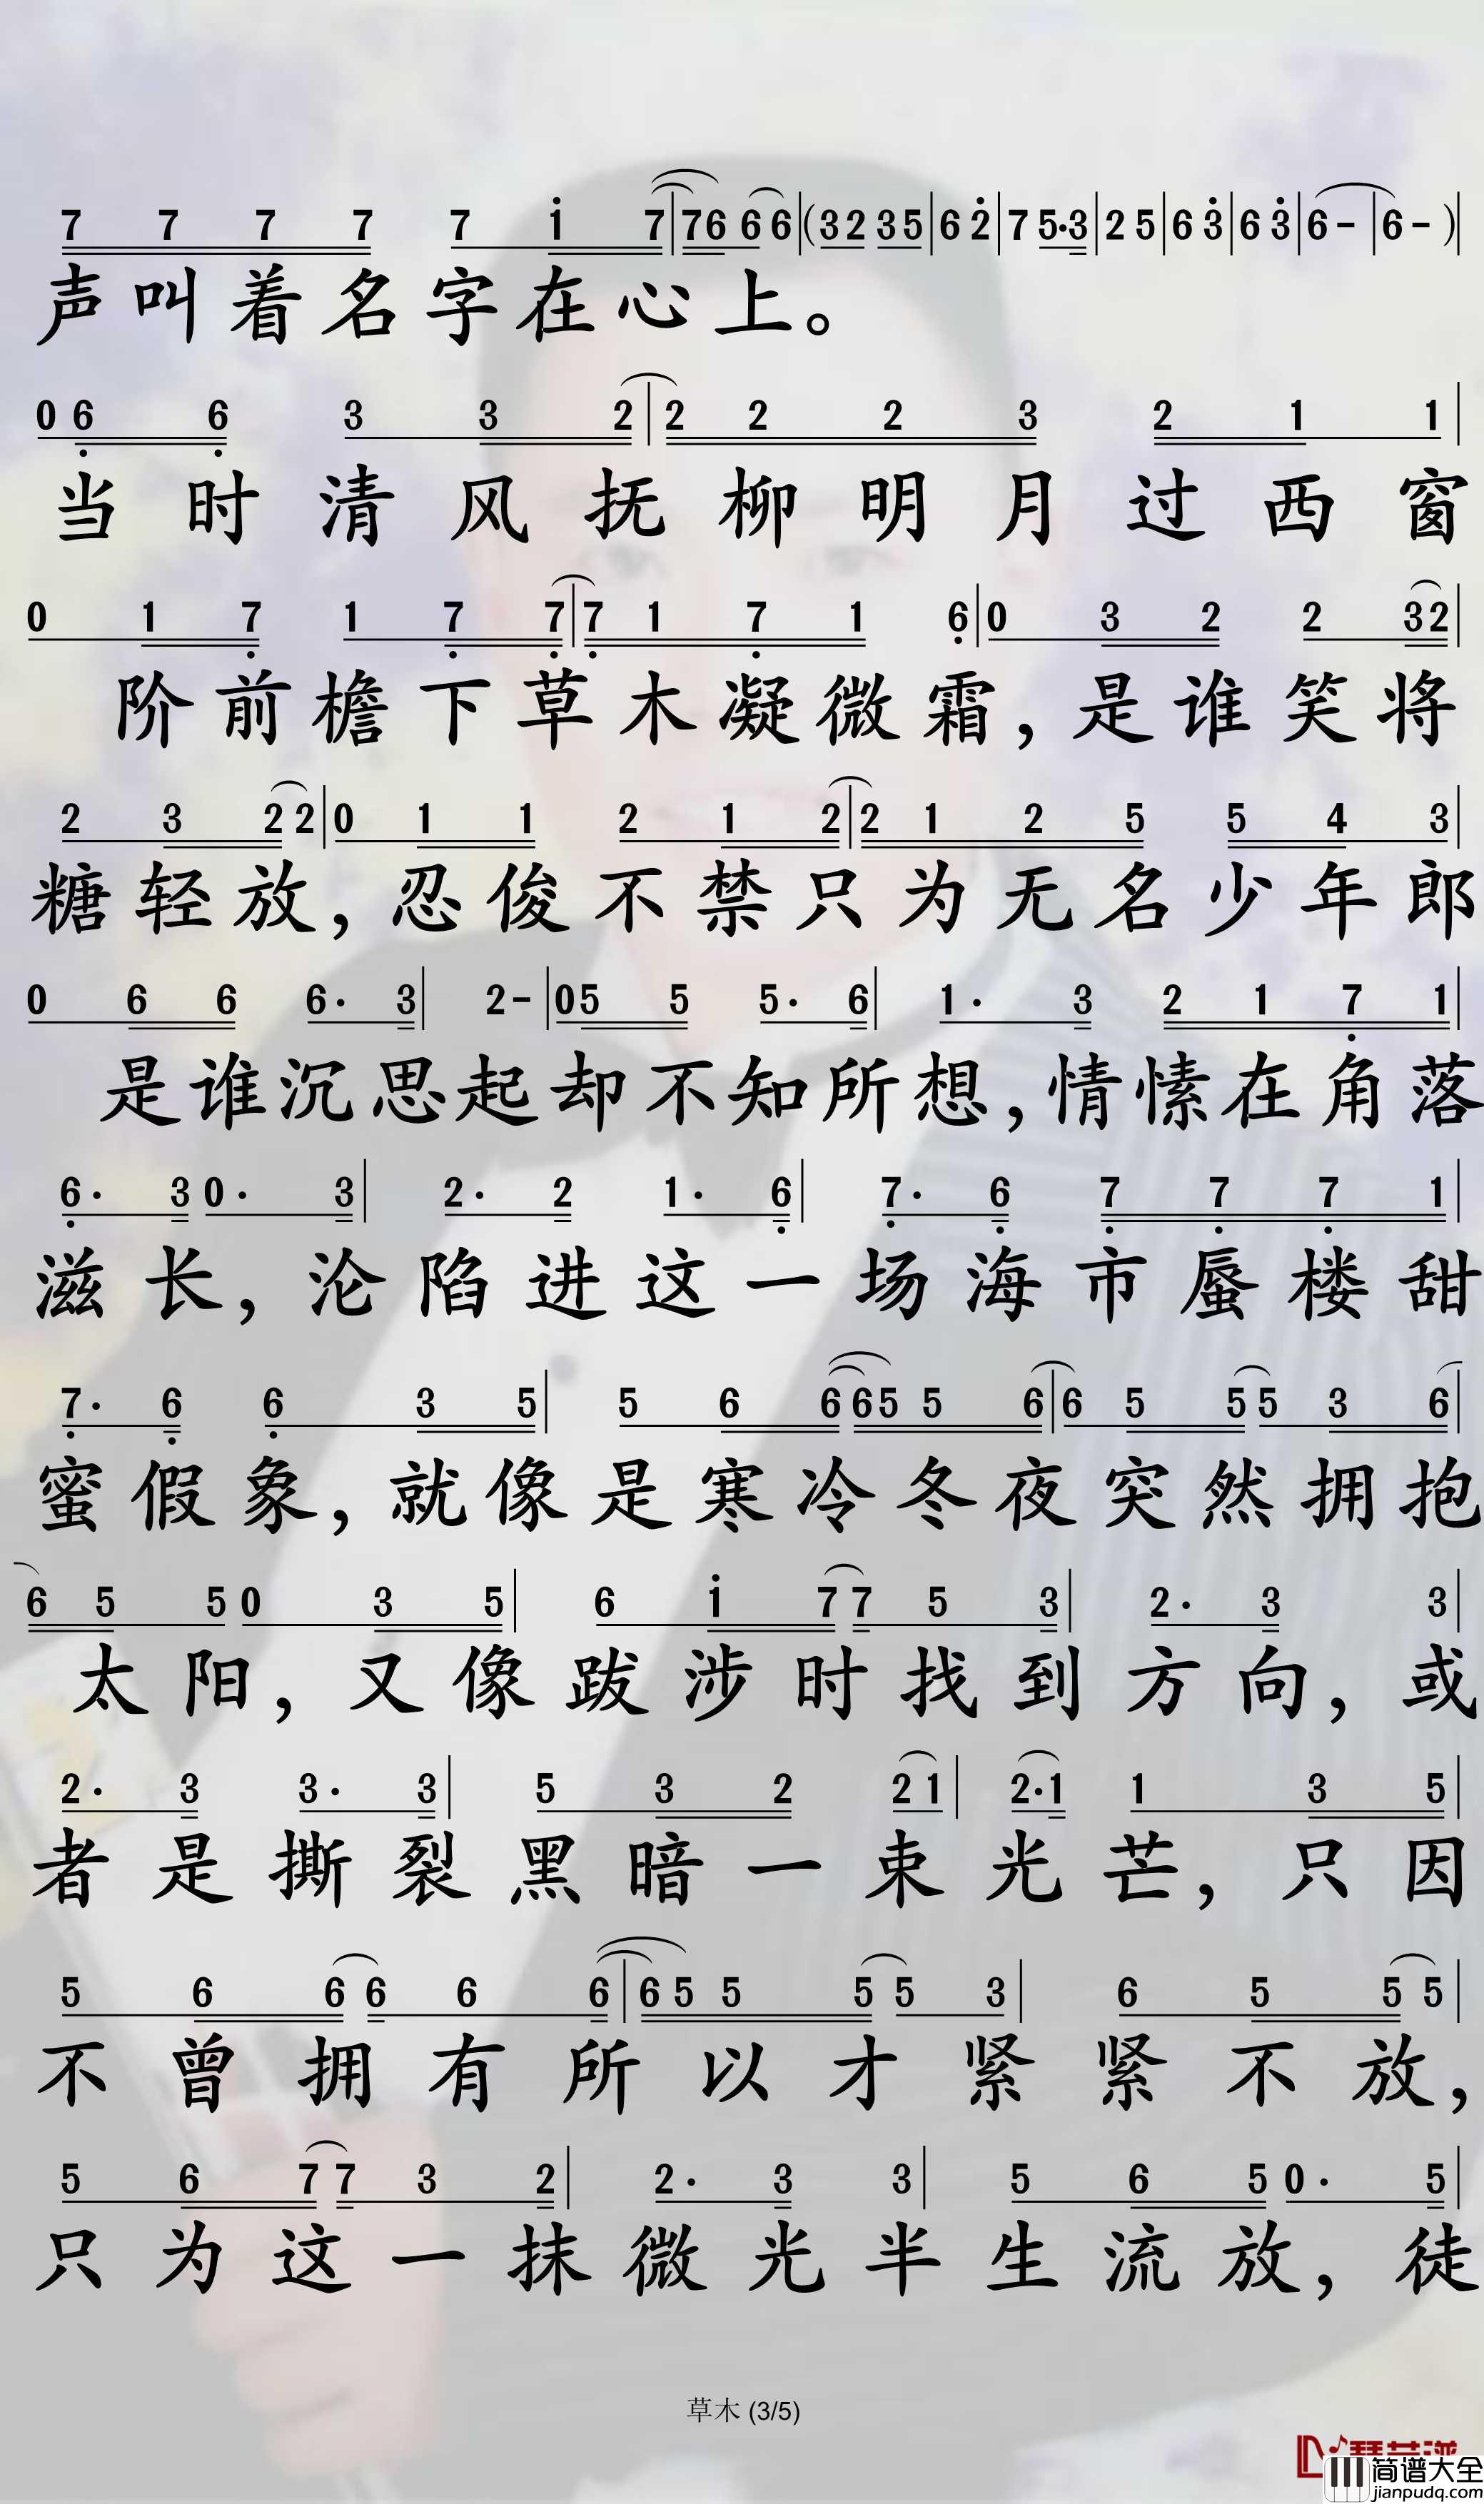 7 7 7 7 7 1 7 | 7 6 6 6 | ( 3 2 3 5 | 6 2 | 7 5 · 3 | 2 5 | 6 3 | 6 3 | 6 - | 6 - ) |
声叫着名字在心上。
0 6 6 3 3 2 | 2 2 2 3 2 1 1 |
当时清风抚柳明月过西窗
0 1 7 1 7 7 | 7 1 7 1 6 | 0 3 2 2 3 2 |
阶前檐下草木凝微霜,是谁笑将
2 3 2 2 | 0 1 1 2 1 2 | 2 1 2 5 5 4 3 |
糖轻放,忍俊不禁只为无名少年郎
0 6 6 6 · 3 | 2 - | 0 5 5 5 · 6 | 1 · 3 2 1 7 1 |
是谁沉思起却不知所想,情愫在角落
6 · 3 0 · 3 | 2 · 2 1 · 6 | 7 · 6 7 7 7 1 |
滋长,沦陷进这一场海市蜃楼甜
7 · 6 6 3 5 | 5 6 6 6 5 5 6 | 6 5 5 5 3 6 |
蜜假象,就像是寒冷冬夜突然拥抱
6 5 5 0 3 5 | 6 1 7 7 5 3 | 2 · 3 3 |
太阳,又像跋涉时找到方向,或
2 · 3 3 · 3 | 5 3 2 2 1 | 2 · 1 1 3 5 |
者是撕裂黑暗一束光芒,只因
5 6 6 6 6 6 | 6 5 5 5 5 3 | 6 5 5 5 |
不曾拥有所以才紧紧不放,
5 6 7 7 3 2 | 2 · 3 3 | 5 6 5 0 · 5 |
只为这一抹微光半生流放,徒
草木 (3/5)
简谱大全
jianpudq.com